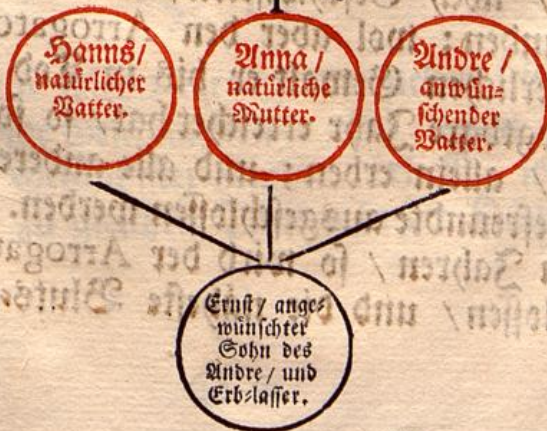 Hanns/
natürlicher
Vatter.
Anna/
natürliche
Mutter.
Andre/
anwün⸗
schender
Vatter.
Ernst/ ange⸗
wünschter
Sohn des
Andre/ und
Erb⸗lasser.